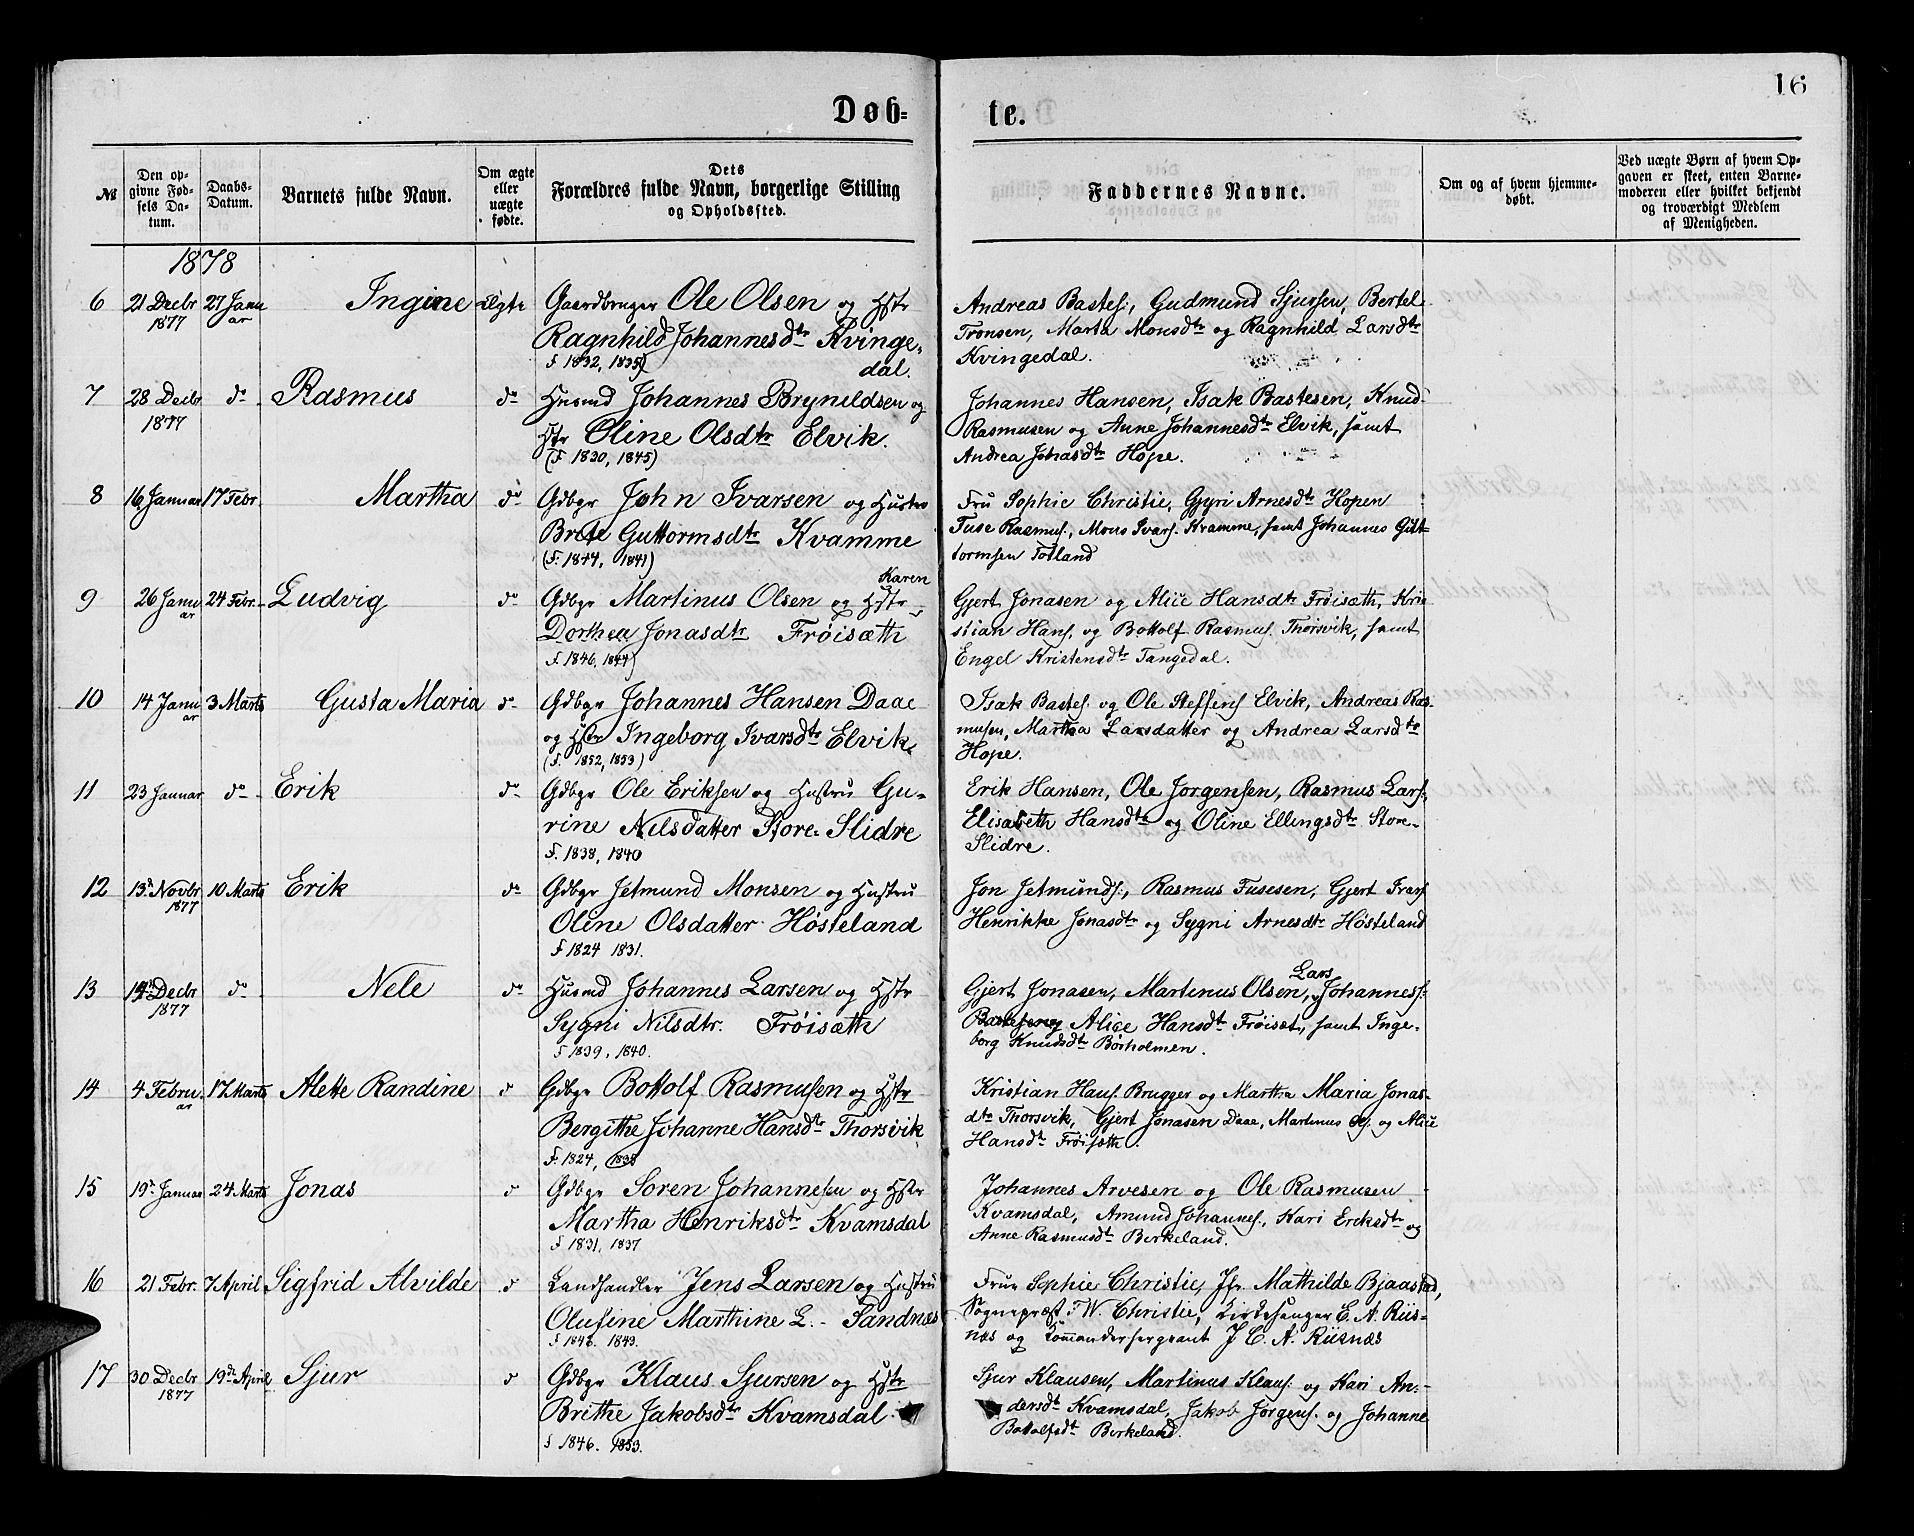 16
Døb=
te.
№
Den op-
givne Fød-
sels Da-
tum.
Daabs-
Datum.
Barnets fulde Navn.
Om ægte
eller
uægte
fødte.
Dets
Forældres fulde Navn, borgerlige Stilling
og Opholdssted.
Faddernes Navne.
Om og af hvem hjemme-
døbt.
Ved uægte Børn af hvem Op-
gaven er skeet, enten Barne-
moderen eller hvilket bekjendt
og troværdigt Medlem
af Menigheden.
1878
6 21 Decbr 1877 27 Januar Ingine ægte
Gaardbruger Ole Olsen og Hstr
Ragnhild Johannesdtr Kvinge-
f 1832, 1835) dal.
Andreas Bastes., Gudmund Sjursen, Bertel
Tronsen, Marta Monsdtr og Ragnhild Larsdtr
Kvingedal.
7 28 Decbr 1877 do Rasmus do
Husmd Johannes Brynildsen og
Hstr Oline Olsdtr Elvik.
(f. 1830, 1845)
Johannes Hansen, Isak Bastesen, Knud
Rasmusen og Anne Johannesdtr Elvik, samt
Andrea Johasdtr Hope.
8 16 Januar 17 Febr. Martha do
Gdbgr John Ivarsen og Hustru
Brite Guttormsdtr Kvamme
(f. 1844, 1841)
Fru Sophie Christie, Gyri Arnesdtr Hopen
Tuse Rasmus., Mons Ivars. Kvamme, samt Johannes Gut-
tormsen Totland
9 26 Januar 24 Febr. Ludvig do
Karen
Gdbgr Martinus Olsen og Hstr
Dorthea Jonasdtr Frøisæth
f. 1846, 1844)
Gjert Jonasen og Alice Hansdtr Frøisæth, Kri-
stian Hans. og Bottolf Rasmus. Thorsvik, samt
Engel Kristensdtr Tangedal.
10 14 Januar 3 Marts Gusta Maria do
Gdbgr Johannes Hansen Daae
og Hstr Ingeborg Ivarsdtr Elvik
(f. 1852, 1853)
Isak Bastes. og Ole Steffens Elvik, Andreas Ras-
musen, Martha Larsdatter og Andrea Larsdtr
Hope.
11 23 Januar do Erik do
Gdbgr Ole Eriksen og Hustru Gu-
rine Nilsdatter Store-Slidre
f. 1838, 1840
Erik Hansen, Ole Jørgensen, Rasmus Lars.,
Elisabeth Hansdtr og Oline Ellingsdtr Store-
Slidre.
12 13de Novbr 1877 10 Marts Erik do
Gdbgr Jetmund Monsen og Hustru
Oline Olsdatter Høsteland
f 1824 1831.
Jon Jetmunds., Rasmus Tusesen, Gjert Ivars
Henrikke Jonasdtr og Sygni Arnesdtr Høsteland
13 Decbr 1877 do Nele do
Husmd Johannes Larsen og Hstr
Sygni Nilsdtr. Frøisæth
f 1839, 1840.
Lars
Gjert Jonasen, Martinus Olsen, Johanness.
Alice Hansdtr Frøiset, samt Inge-
borg Knudsdtr Børholmen.
14 4 Februar 17 Marts Alette Randine do
Gdbgr Bottolf Rasmusen og Hstr
Bergithe Johanne Hansdtr Thorsvik
f. 1824, 1838
Kristian Hans. Brugger og Martha Maria Jonas-
dtr Thorsvik, Gjert Jonasen Daae, Martinus Ols. og Alice
Hansdtr Frøisæth.
15 19de Januar 24 Marts Jonas do
Gdbgr Søren Johannesen og Hstr
Martha Henriksdtr Kvamsdal
f 1831, 1837
Johannes Arvesen og Ole Rasmusen
Kvamsdal, Amund Johannes., Kari Eriksdtr og
Anne Rasmusdtr Birkeland.
16 21 Febr. 7 April Sigfrid Alvilde do
Landhandler Jens Larsen og Hustru
Olufine Marthine L. Sandnæs
f 1843. 1843.
Frue Sophie Christie, Jfr. Mathilde Bjaastad,
Sognepræst W. Christie, Kirkesanger E. A. Riis-
næs og Commandersergeant J C. A. Riisnæs
17 30 Decbr 1877 19de April Sjur do
Gdbgr Klaus Sjursen og Hstr
Brithe Jakobsdtr Kvamsdal
f 1846. 1853.
Sjur Klausen, Martinus Klaus. og Kari An-
dersdtr Kvamsdal, Jakob Jørgens. og Johanne
Bottolfsdtr Birkeland.